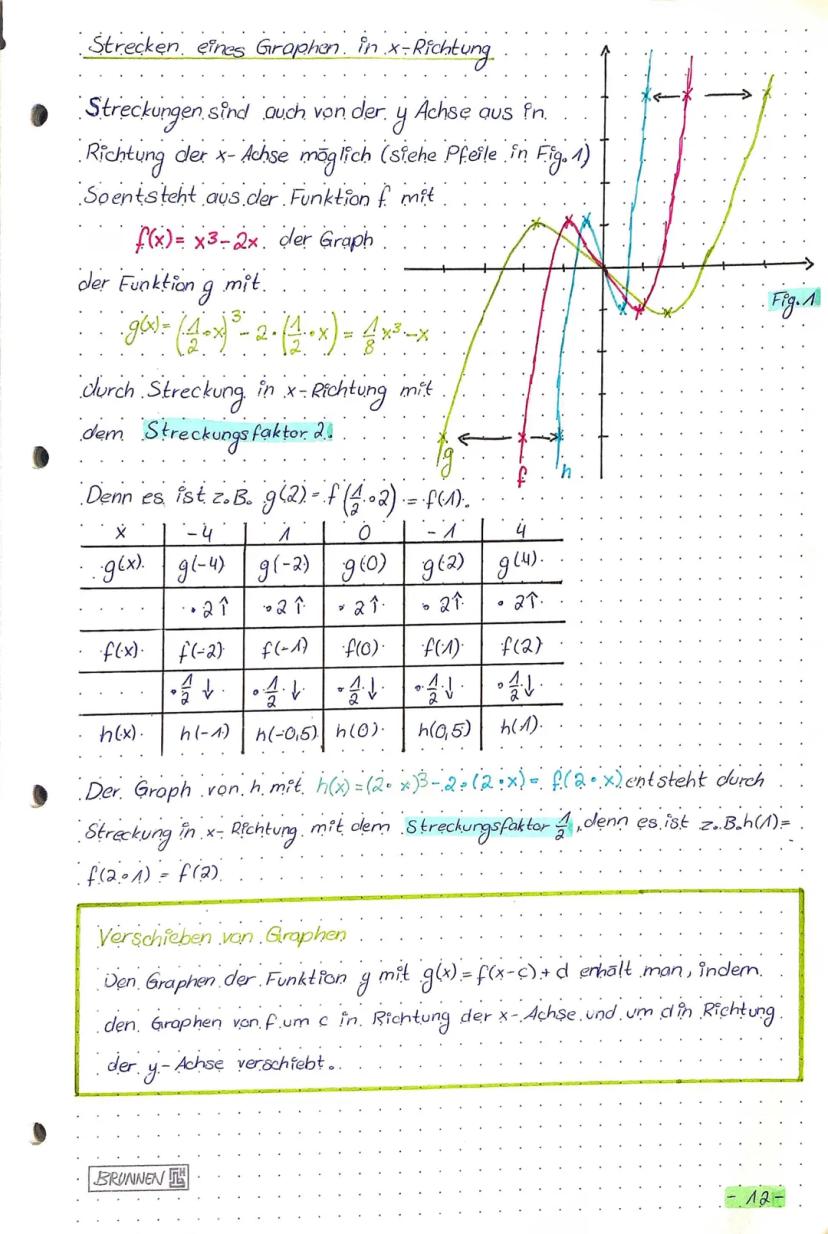 Strecken eines Graphen in x-Richtung
Streckungen sind auch von der y Achse aus in
Richtung der x-Achse möglich (siehe Pfeile in Fig. 1)
So entsteht aus der Funktion f mit
f(x) = x³-2x der Graph
der Funktion g mit
g(x) = (1/2 · x)³ - 2 · (1/2 · x) = 1/8 x³ - x
durch Streckung in x-Richtung mit
dem Streckungsfaktor 2.
Fig. 1
g f h
Denn es ist z.B. g(2) = f(1/2 · 2) = f(1).
x -4 1 0 -1 4
g(x) g(-4) g(-2) g(0) g(2) g(4)
· 2↑ · 2↑ · 2↑ · 2↑ · 2↑
f(x) f(-2) f(-1) f(0) f(1) f(2)
· 1/2 ↓ · 1/2 ↓ · 1/2 ↓ · 1/2 ↓ · 1/2 ↓
h(x) h(-1) h(-0,5) h(0) h(0,5) h(1)
Der Graph von h mit h(x) = (2 · x)³ - 2 · (2 · x) = f(2 · x) entsteht durch
Streckung in x-Richtung mit dem Streckungsfaktor 1/2, denn es ist z.B. h(1) =
f(2 · 1) = f(2)
Verschieben von Graphen
Den Graphen der Funktion g mit g(x) = f(x-c) + d erhält man, indem
den Graphen von f um c in Richtung der x-Achse und um d in Richtung
der y-Achse verschiebt.
BRUNNEN
- 12 -